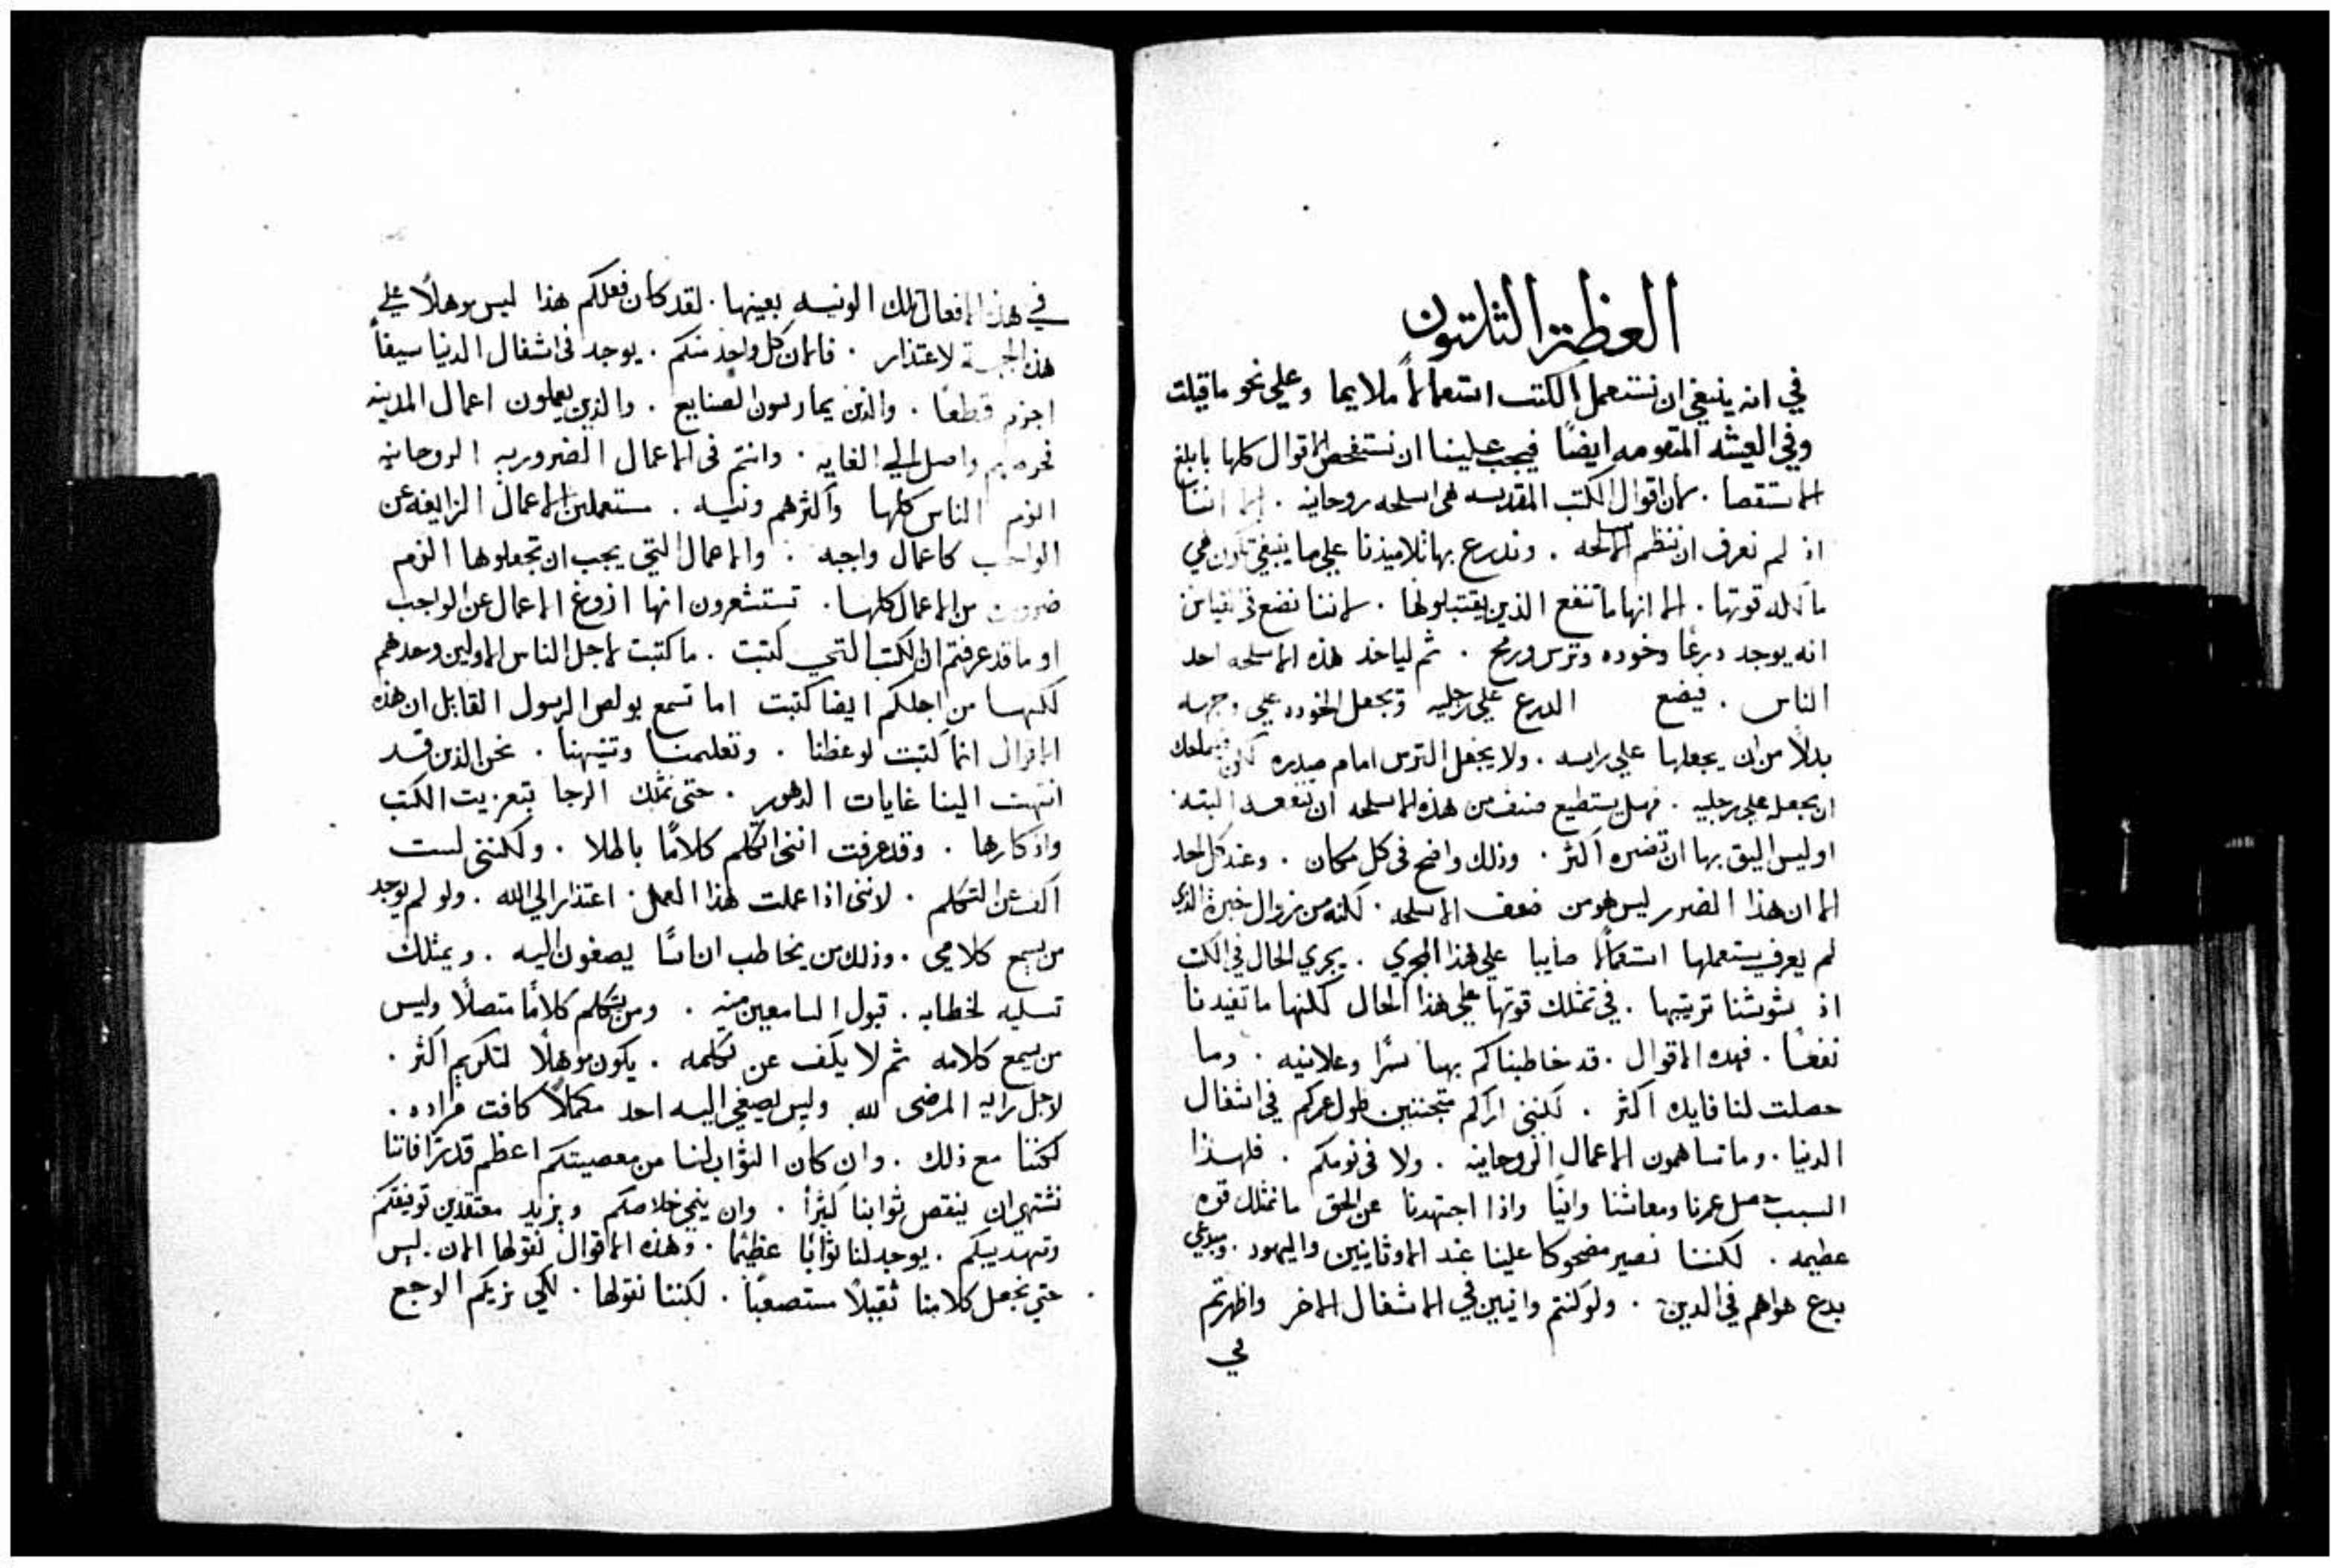 العظة الثلثون
في انه ينبغي ان نستعمل الكتب استعمالاً ملايما وعلي نحو ما قيلت
وفي العيشه المتقومه ايضاً فيجب علينا ان نستفحص الاقوال كلها بابلغ
الاستقصا . لان اقوال الكتب المقدسه هي اسلحه روحانيه . الا اننا
اذ لم نعرف ان ننظم الاسلحه . وندرع بها تلاميذنا علي ما ينبغي تكون هي
مالكه قوتها . الا انها ما تنفع الذين يقتبلونها . لاننا نضع في قياس
انه يوجد درعاً وخوده وترس ورمح . ثم لياخذ هذه الاسلحه احد
الناس . فيضع الدرع علي رجليه وتجعل الخوده علي وجهه
بدلاً من ان يجعلها علي راسه . ولا يجعل الترس امام صدره لكن
ان يجعله علي رجليه . فهل يستطيع صنف من هذه الاسلحه ان تنفعه البته
او ليس اليق بها ان تضره اكثر . وذلك واضح في كل مكان . وعند كل احد
الا ان هذا الضرر ليس هو من ضعف الاسلحه . لكنه من زوال خبرة الذي
لم يعرف يستعملها استعمالاً صايبا علي هذا المجري . يجري الحال في الكتب
اذ شوشنا ترتيبها . في تمثلك قوتها علي هذا الحال لكنها ما تفيدنا
نفعاً . فهده الاقوال . قد خاطبناكم بها سراً وعلانيه . وما
حصلت لنا فايده اكثر . لكنني اراكم متجننين طول عمركم في اشغال
الدنيا . وما تساهمون الاعمال الروحانيه . ولا في نومكم . فلهذا
السبب حصل عمرنا ومعاشنا وانياً واذا اجتهدنا عن الحق ما نمثلك قوه
عظيمه . لكننا نصير مضحوكا علينا عند الاوثانيين واليهود .
بدع هواهم في الدين . ولو كنتم وانيين في الاشغال الاخر واظهرتم
في
في هذه الافعال تلك الونيه بعينها . لقد كان فعلكم هذا ليس موهلاً علي
هذه الجهة لاعتذار . فالان كل واحد منكم . يوجد في اشغال الدنيا سيفاً
اجزم قطعاً . والذين يمارسون الصنايع . والذين يعملون اعمال المدينه
فحرصهم واصل الي الغايه . وانتم في الاعمال الضروريه الروحانيه
الزم الناس كلها واكثرهم ونيه . مستعملين الاعمال الزايغه عن
الواجب كاعمال واجبه . والاعمال التي يجب ان تجعلوها الزم
ضرورت من الاعمال كلها . تستشعرون انها ازوغ الاعمال عن الواجب
او ما قد عرفتم ان الكتب التي كتبت . ما كتبت لاجل الناس الاولين وحدهم
لكنها من اجلكم ايضا كتبت اما تسمع بولص الرسول القايل ان هذه
الاقوال انما كتبت لوعظنا . وتعليمنا وتنبيهنا . نحن الذين قد
انتهت الينا غايات الدهور . حتي نمثلك الرجا بتعزيت الكتب
واذكارها . وقد عرفت انني اتكلم كلاماً باطلا . ولكنني لست
اكف عن التكلم . لانني اذا عملت هذا العمل . اعتذر الي الله . ولو لم يوجد
من يسمع كلامي . وذلك من يخاطب اناسًا يصغون اليه . ويمثلك
تسليه لخطابه . قبول السامعين منه . ومن يتكلم كلامًا متصلًا وليس
من يسمع كلامه ثم لا يكف عن تكلمه . يكون موهلًا لتكريم اكثر .
لاجل رايه المرضي لله وليس يصغي اليه احد مكملاً كافت مراده .
لكننا مع ذلك . وان كان الثواب لنا من معصيتكم اعظم قدرًا فاننا
نشتهي ان ينقص ثوابنا كثيراً . وان ينجي خلاصكم ويزيد معتقدين توفيقكم
وتهديبكم . يوجد لنا ثوابًا عظيمًا . وهذه الاقوال نقولها الان . ليس
حتي نجعل كلامنا ثقيلًا مستصعبًا . لكننا نقولها . لكي نريكم الوجع